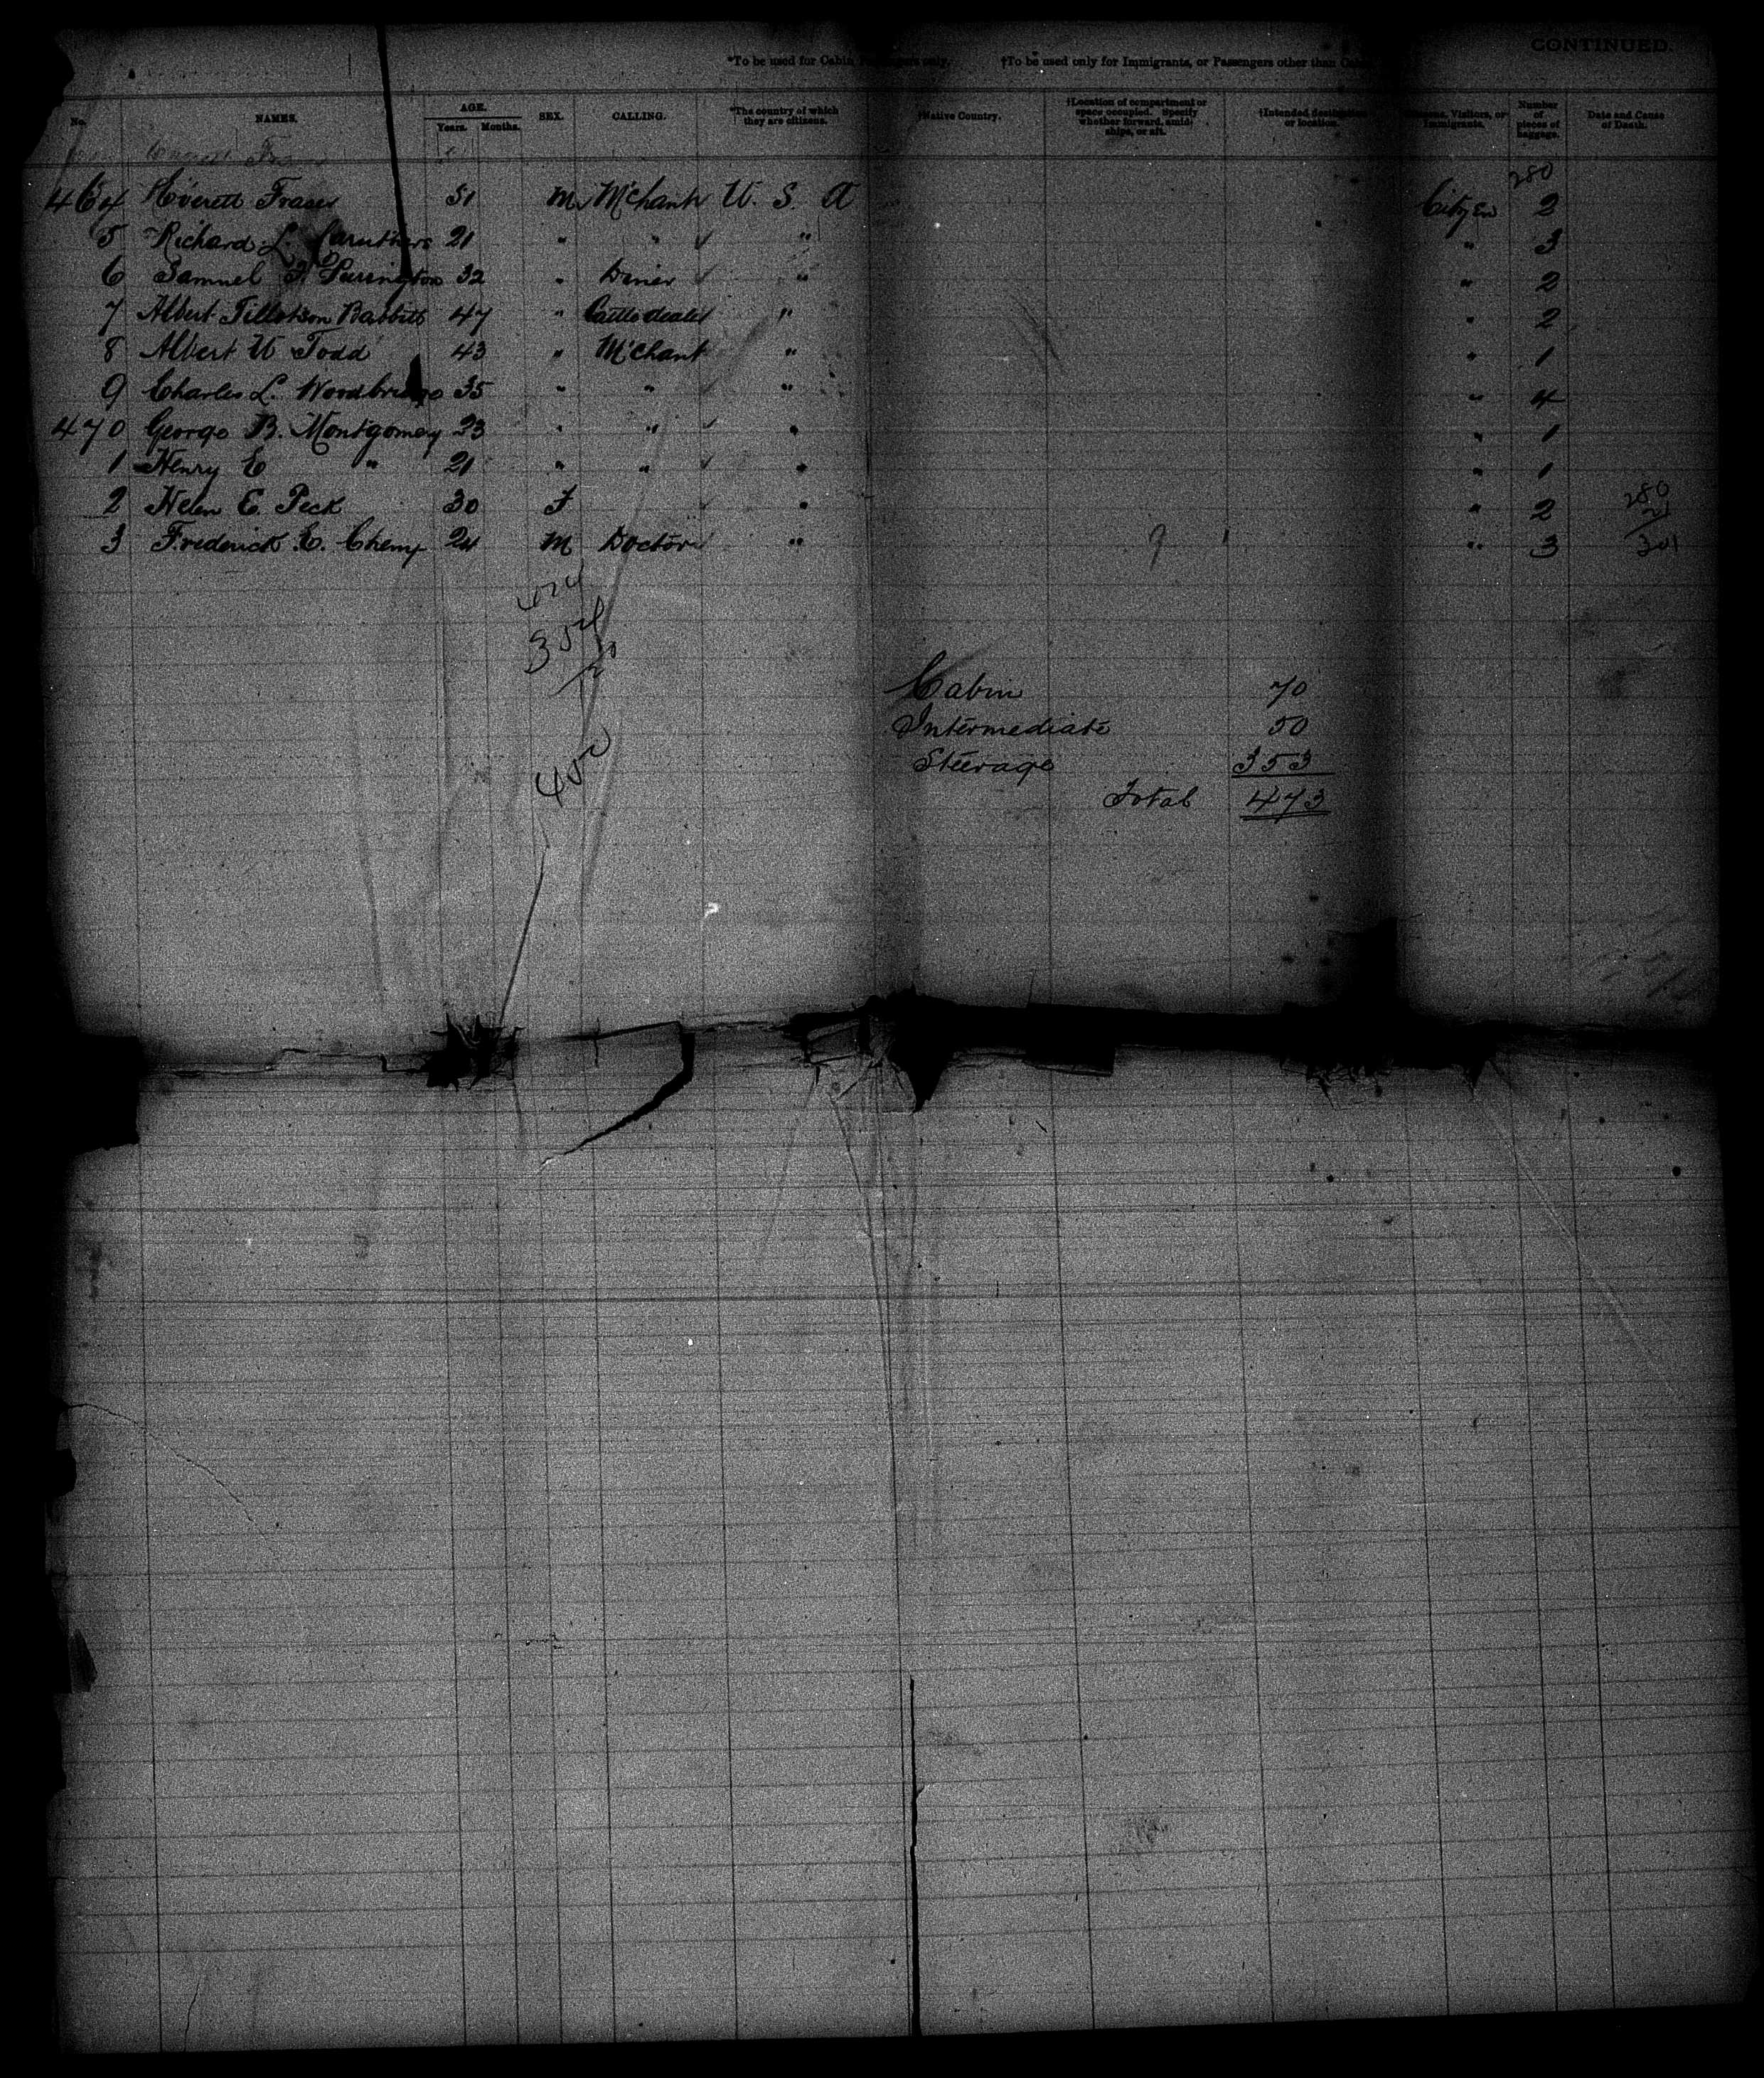 CONTINUED.
*To be used for Cabin Passengers only. †To be used only for Immigrants, or Passengers other than Cabin
No. NAMES. AGE. Years. Months. SEX. CALLING. *The country of which they are citizens. †Native Country. †Location of compartment or space occupied. Specify whether forward, amidships, or aft. †Intended destination or location. Visitors, or Immigrants. Number of pieces of baggage. Date and Cause of Death.
280
464 Everett Frazer 51 M M'chant U. S. A Citizen 2
5 Richard L. Caruthers 21 " " " " 3
6 Samuel 32 " " " 2
7 Albert Tillotson Babbitt 47 " Cattle dealer " " 2
8 Albert W Todd 43 " M'chant " " 1
9 Charles L. Woodbridge 35 " " " " 4
470 George B. Montgomery 23 " " " " 1
1 Henry E " 21 " " " " 1
2 Helen E. Peck 30 F " " 2 280
21
3 Frederick E. Cheny 24 M Doctor " " 3 301
Cabin 70
Intermediate 50
Steerage 353
Total 473